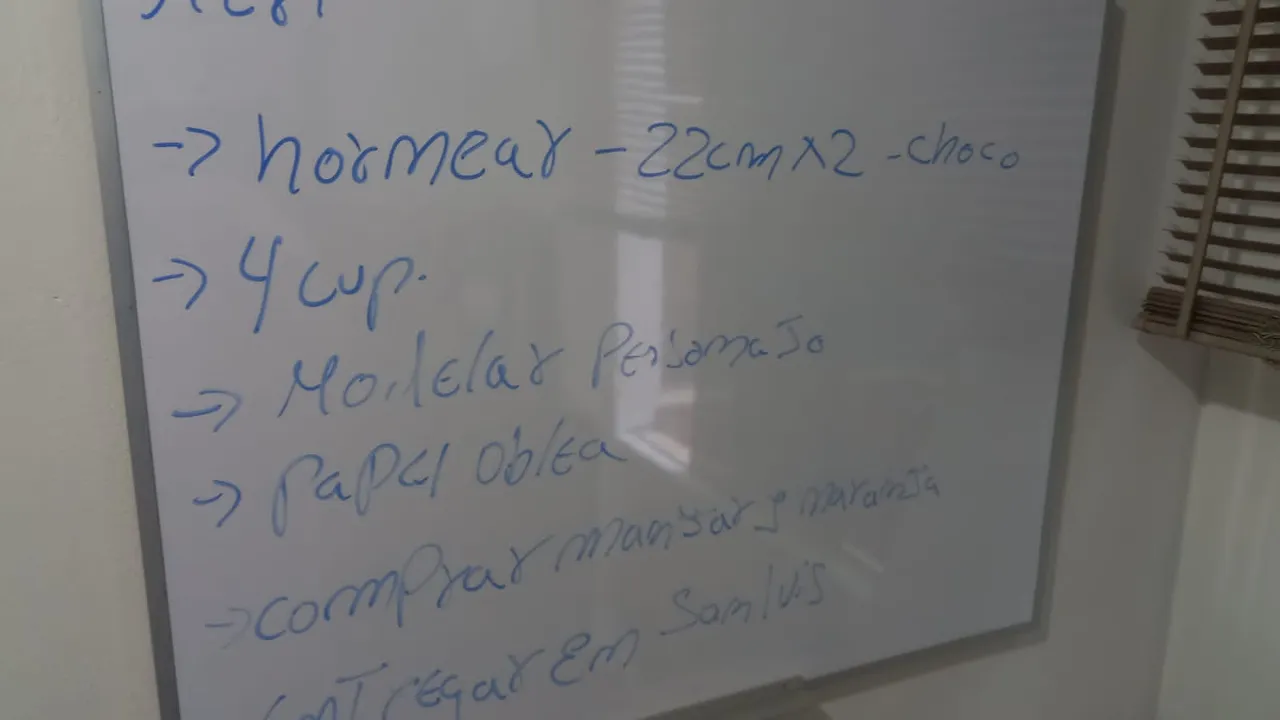 → hornear - 22cm x2 - choco
→ 4 cup.
→ Modelar Personajo
→ papel oblea
→ comprar manjar y naranja
Entregar En San luis